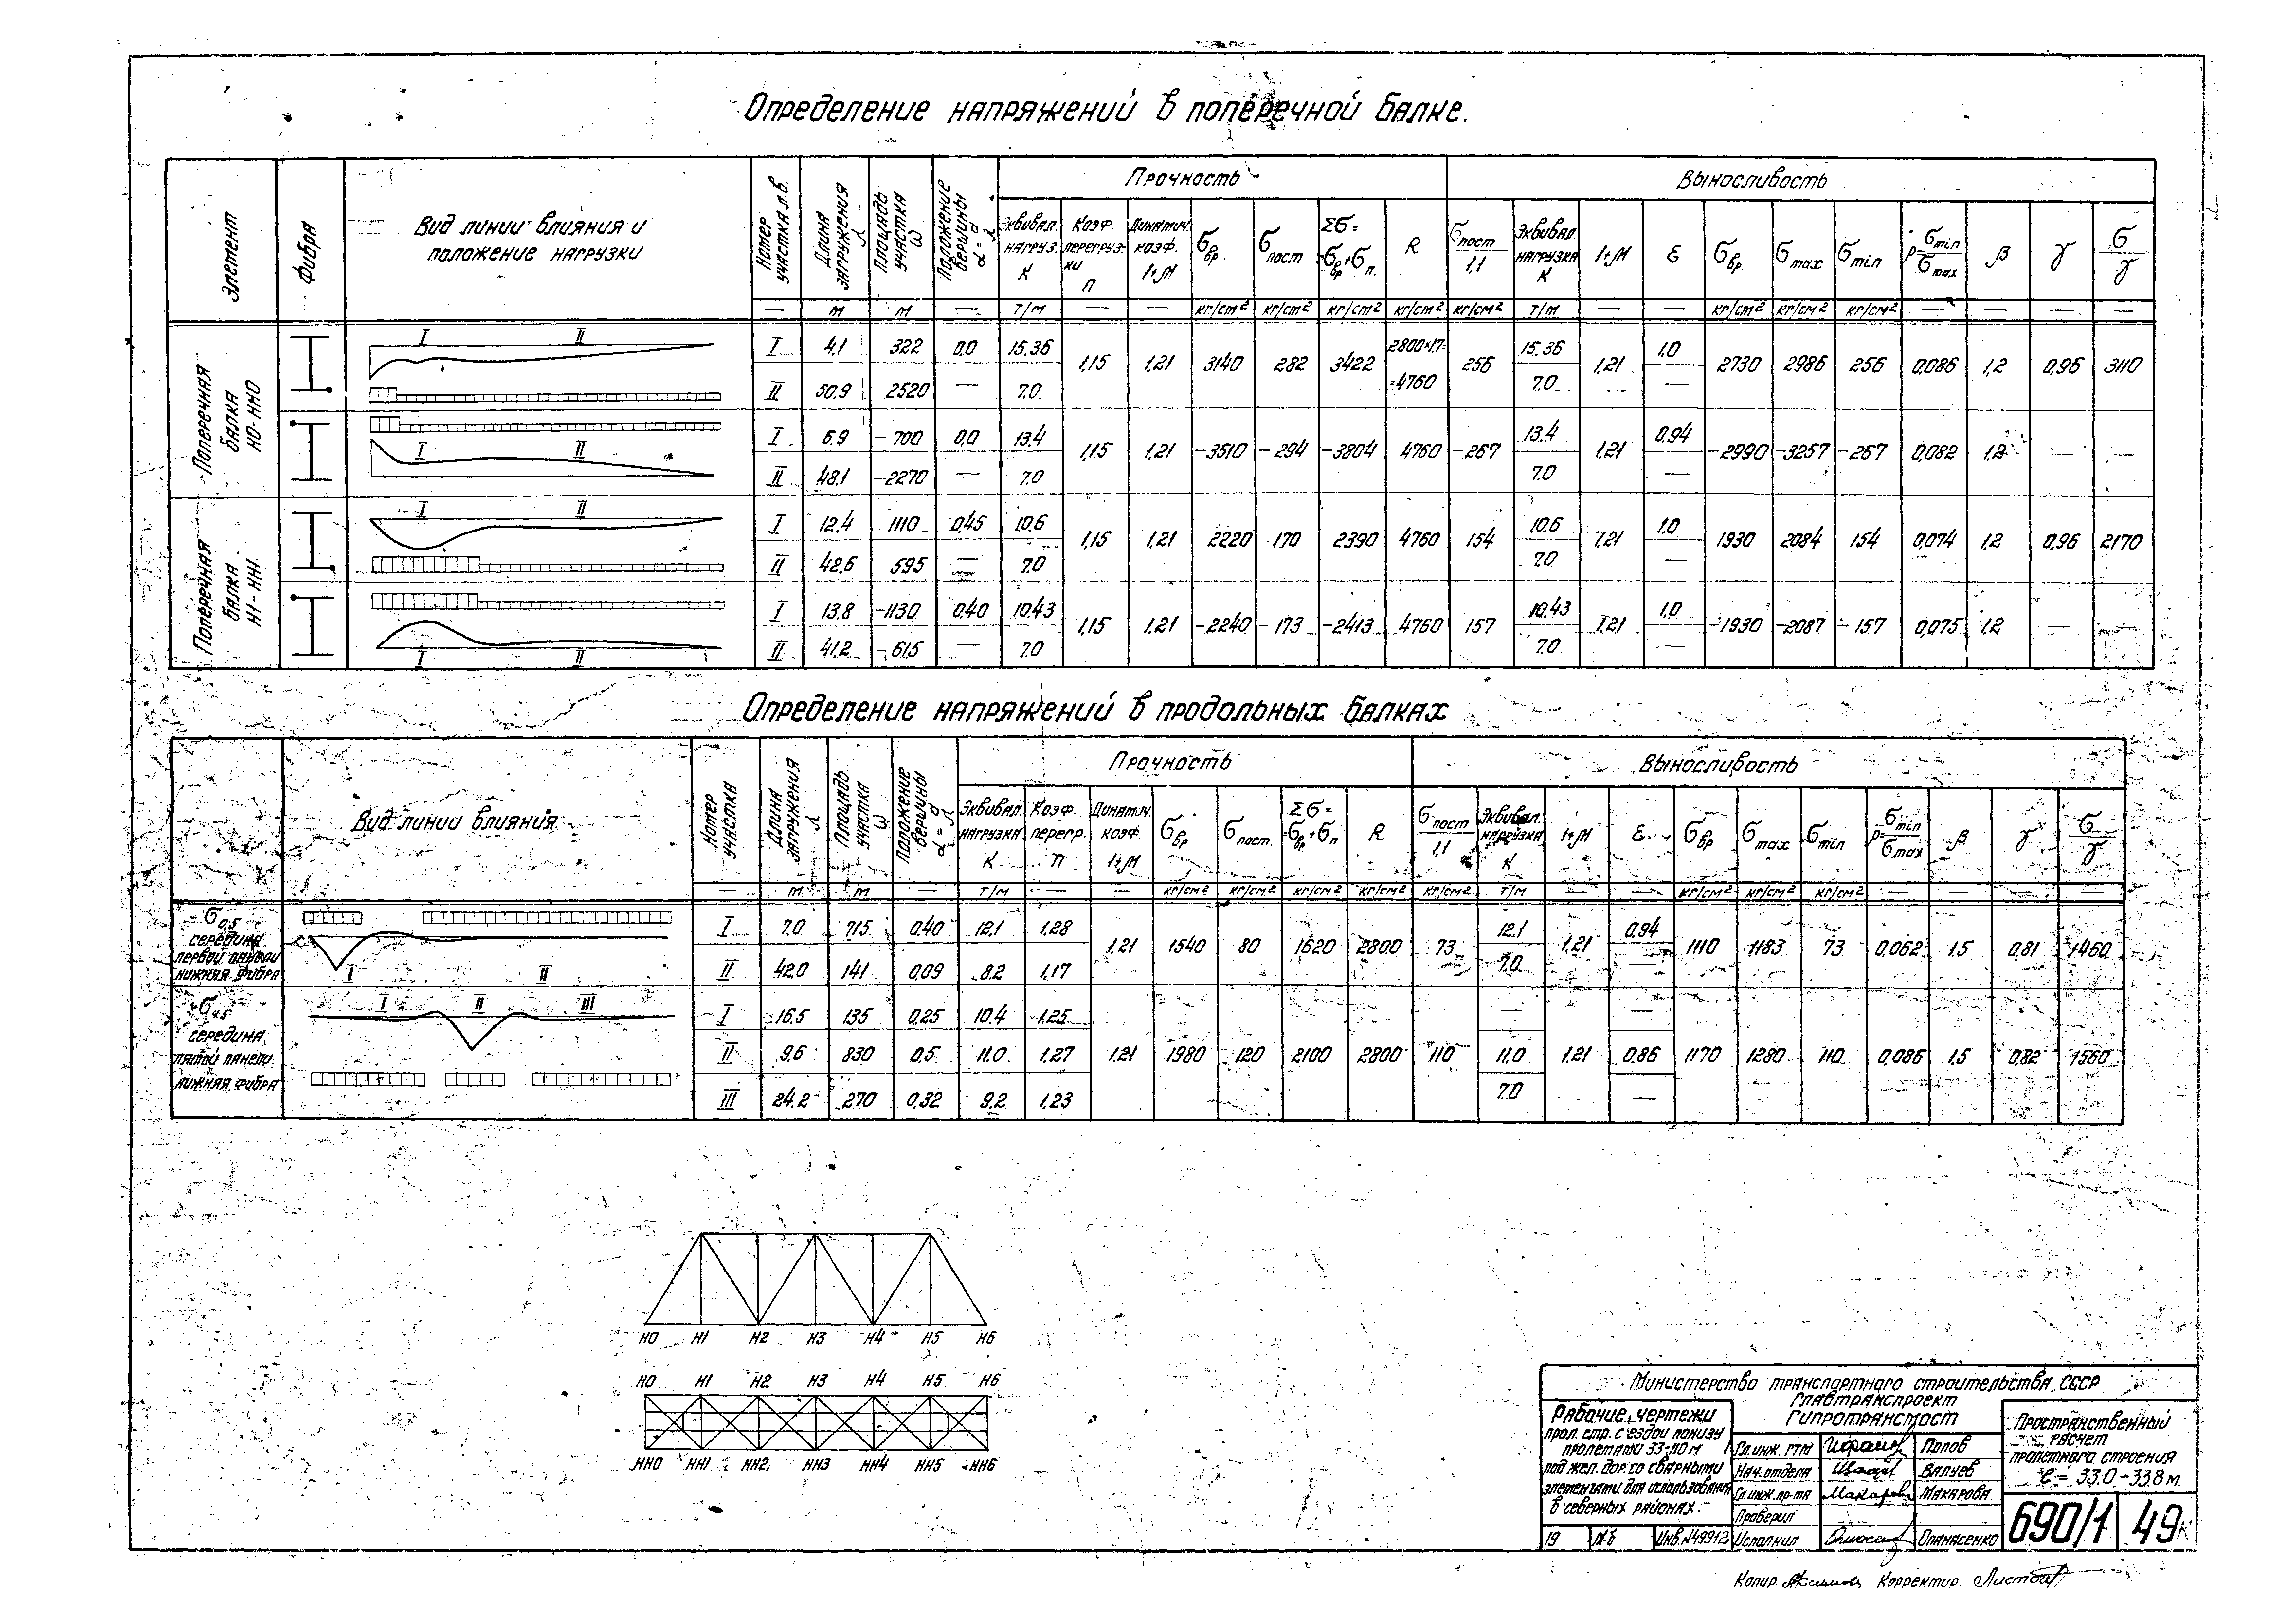 Определение напряжений в поперечной балке.
Элемент
Фибра
Вид линии влияния и
положение нагрузки
Номер участка л.в.
Длина загружения λ
Площадь участка ω
Положение вершины α = a/λ
Прочность
Выносливость
Эквивал. нагруз. K
Коэф. перегруз-ки п
Динамич. коэф. 1+М
σвр.
σпост
Σσ= =σвр+σп.
R
σпост/1,1
Эквивал. нагрузка K
1+М
ε
σвр.
σmax
σmin
ρ=σmin/σmax
β
γ
σ/γ
— м м — т/м — — кг/см² кг/см² кг/см² кг/см² кг/см² т/м — — кг/см² кг/см² кг/см² — — — —
Поперечная балка Н0-НН0
I II
I 4.1 322 0,0 15.36 1,15 1,21 3140 282 3422 2800×1,7= 256 15.36 1,21 1.0 2730 2986 256 0,086 1,2 0,96 3110
II 50.9 2520 — 7.0 =4760 7.0 —
I II
I 6.9 -700 0,0 13.4 1,15 1,21 -3510 -294 -3804 4760 -267 13.4 1,21 0,94 -2990 -3257 -267 0,082 1,2 — —
II 48.1 -2270 — 7.0 7.0 —
Поперечная балка Н1-НН1
I II
I 12.4 1110 0,45 10.6 1,15 1,21 2220 170 2390 4760 154 10.6 1,21 1.0 1930 2084 154 0,074 1,2 0,96 2170
II 42.6 595 — 7.0 7.0 —
I II
I 13.8 -1130 0,40 10.43 1,15 1.21 -2240 -173 -2413 4760 157 10.43 1,21 1,0 -1930 -2087 -157 0,075 1,2 — —
II 41.2 -615 — 7.0 7.0 —
Определение напряжений в продольных балках
Вид линии влияния
Номер участка
Длина загружения λ
Площадь участка ω
Положение вершины α = a/λ
Прочность
Выносливость
Эквивал. нагрузка K
Коэф. перегр. п
Динамич. коэф. 1+М
σвр
σпост.
Σσ= =σвр+σп
R
σпост/1,1
Эквивал. нагрузка K
1+М
ε
σвр
σmax
σmin
ρ=σmin/σmax
β
γ
σ/γ
— м м — т/м — — кг/см² кг/см² кг/см² кг/см² кг/см² т/м — — кг/см² кг/см² кг/см² — — — —
σ0,5
середина
первой панели
нижняя фибра
I II
I 7.0 715 0,40 12.1 1.28 1.21 1540 80 1620 2800 73 12.1 1.21 0.94 1110 1183 73 0,062 1.5 0,81 1460
II 42.0 141 0,09 8.2 1,17 7.0 —
σ4.5
середина
пятой панели
нижняя фибра
I II III
I 16.5 135 0,25 10.4 1.25 — —
II 9.6 830 0,5 11.0 1.27 1.21 1980 120 2100 2800 110 11.0 1.21 0,86 1170 1280 110 0,086 1.5 0,82 1560
III 24.2 270 0,32 9.2 1.23 7.0 —
Н0 Н1 Н2 Н3 Н4 Н5 Н6
Н0 Н1 Н2 Н3 Н4 Н5 Н6
НН0 НН1 НН2 НН3 НН4 НН5 НН6
Министерство транспортного строительства СССР
Главтранспроект
Гипротрансмост
Рабочие чертежи
прол. стр. с ездой понизу
пролетами 33-110 м
под жел. дор. со сварными
элементами для использования
в северных районах.
Гл. инж. ГТМ Попов
Нач. отдела Валуев
Гл. инж. пр-та Макарова
Проверил
Исполнил Опанасенко
19 М-б Инв. №49912
Пространственный
расчет
пролетного строения
ℓ = 33.0-33.8 м
690/1 49к
Копир. Корректир.